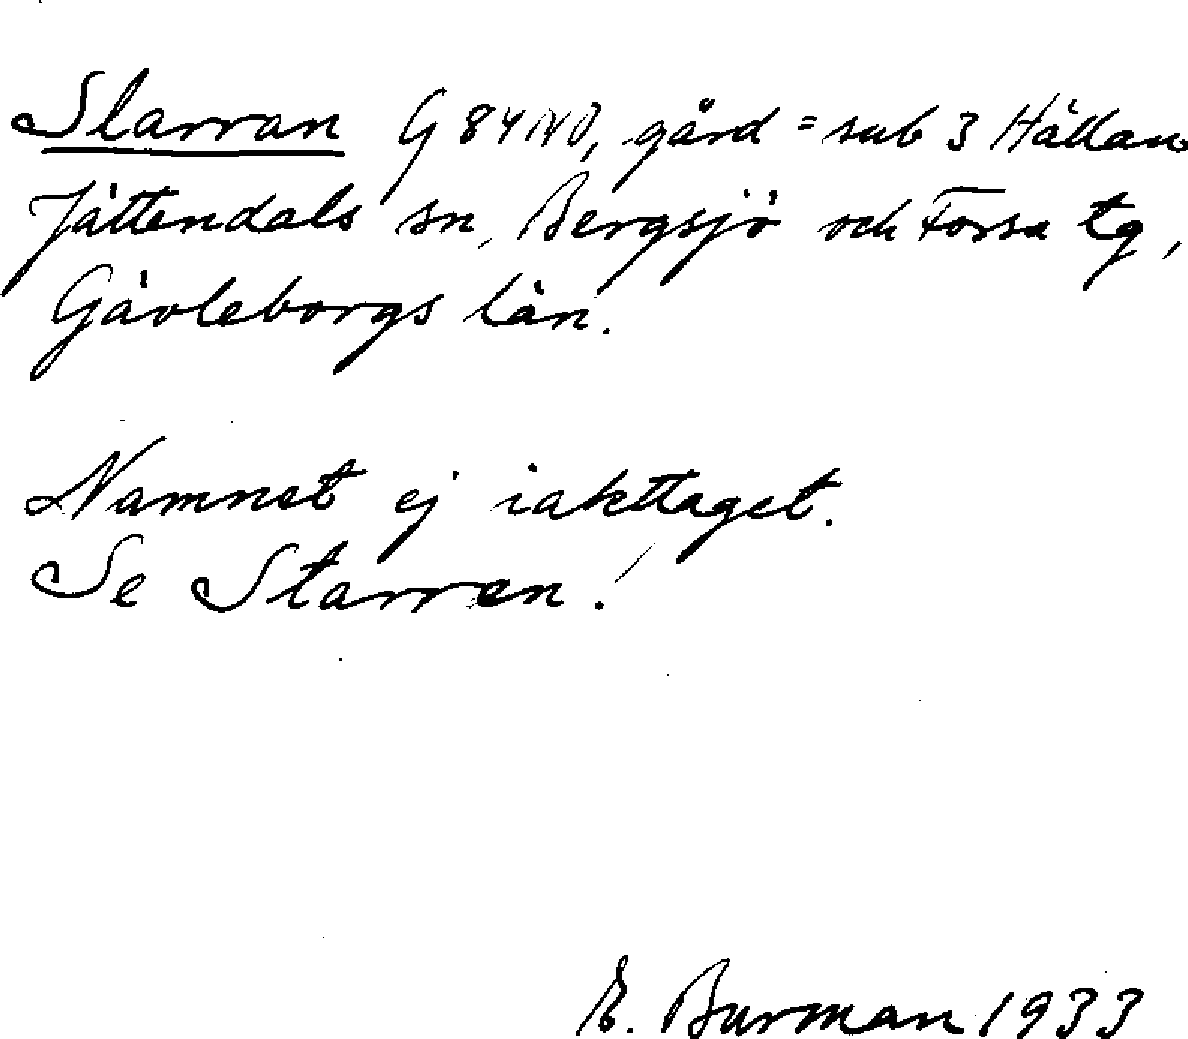 Slarran G 84 NO, gård = sub 3 Hällan
Jättendals sn, Bergsjö och Forsa tg,
Gävleborgs län.
Namnet ej iakttaget.
Se Starren!
E. Burman 1933